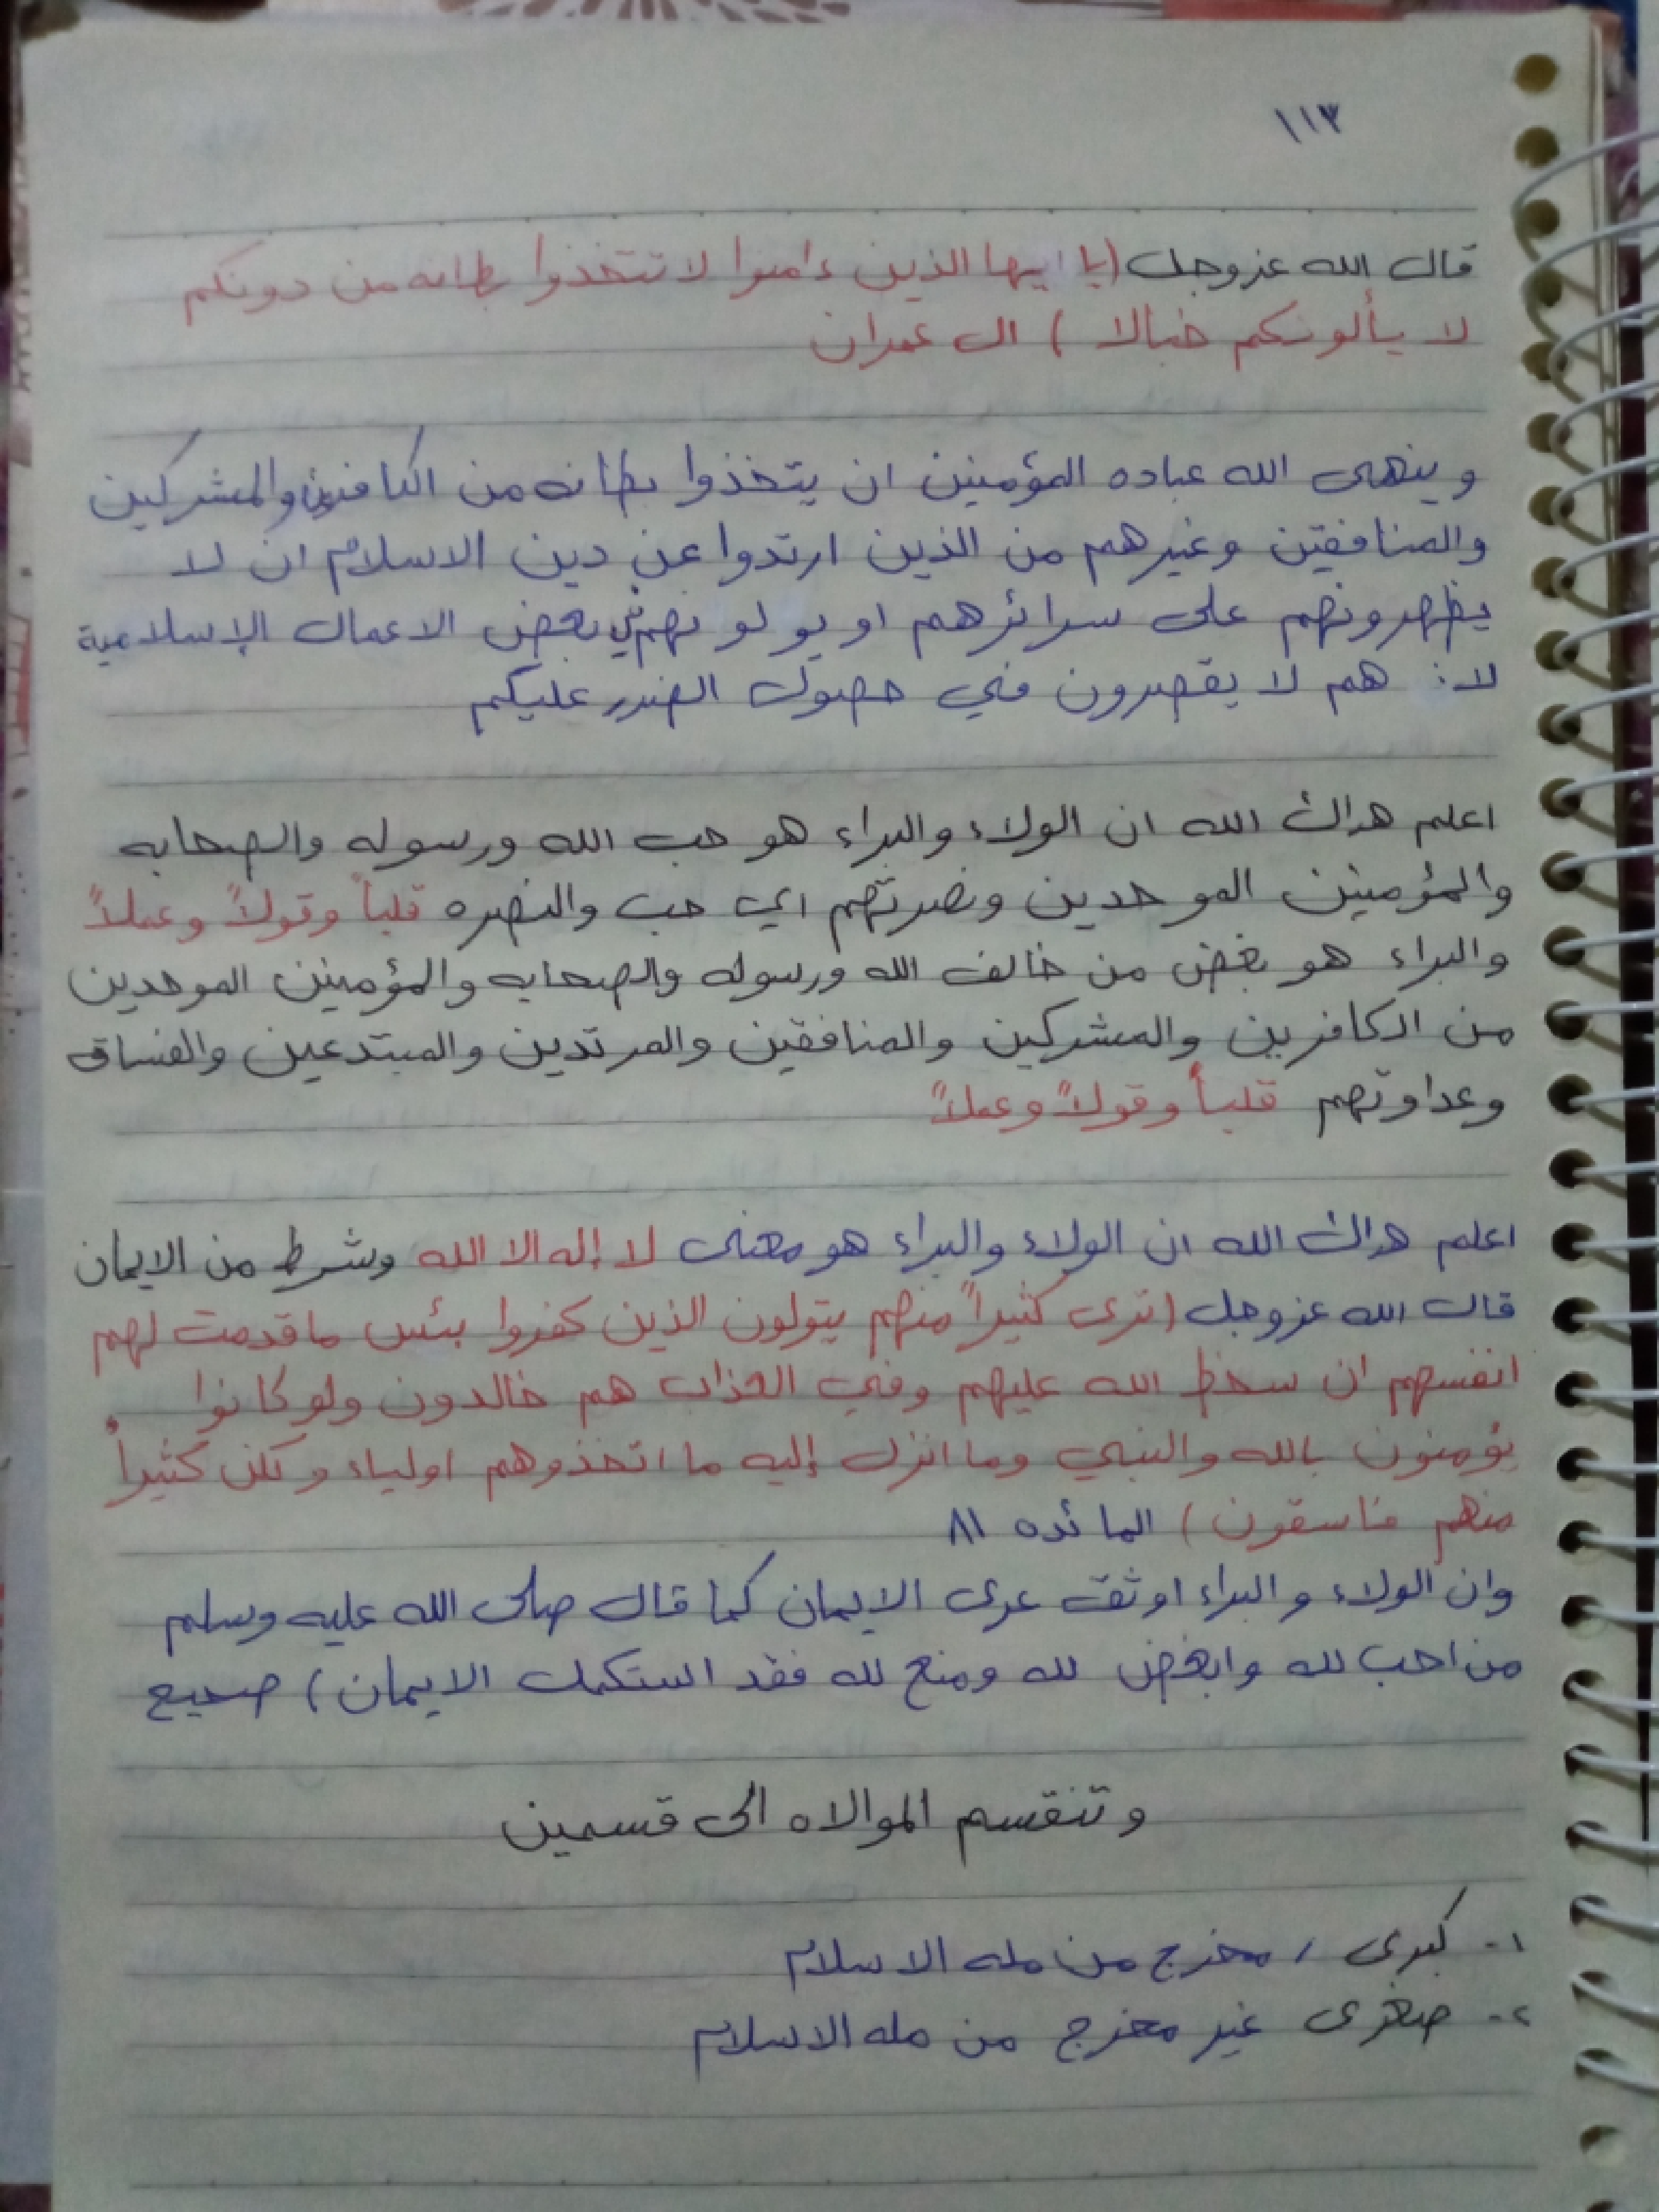 ١١٣
قال الله عزوجل (يا ايها الذين ءامنوا لا تتخذوا بطانه من دونكم
لا يألونكم خبالا ) ال عمران
وينهى الله عباده المؤمنين ان يتخذوا بطانه من الكافرين والمشركين
والمنافقين وغيرهم من الذين ارتدوا عن دين الاسلام ان لا
يظهرونهم على سرائرهم او يولونهم في بعض الاعمال الإسلامية
لان هم لا يقصرون في حصول الضرر عليكم
اعلم هداك الله ان الولاء والبراء هو حب الله ورسوله والصحابه
والمؤمنين الموحدين ونصرتهم اي حب والنصره قلباً وقولاً وعملاً
والبراء هو بغض من خالف الله ورسوله والصحابه والمؤمنين الموحدين
من الكافرين والمشركين والمنافقين والمرتدين والمبتدعين والفساق
وعداوتهم قلباً وقولاً وعملاً
اعلم هداك الله ان الولاء والبراء هو معنى لا إله الا الله وشرط من الايمان
قال الله عزوجل (ترى كثيراً منهم يتولون الذين كفروا بئس ما قدمت لهم
انفسهم ان سخط الله عليهم وفي العذاب هم خالدون ولو كانوا
يؤمنون بالله والنبي وما انزل إليه ما اتخذوهم اولياء ولكن كثيراً
منهم فاسقون ) المائده ٨١
وان الولاء والبراء اوثق عرى الايمان كما قال صلى الله عليه وسلم
من احب لله وابغض لله ومنع لله فقد استكمل الايمان ) صحيح
وتنقسم الموالاه الى قسمين
١- كبرى / مخرج من مله الاسلام
٢- صغرى غير مخرج من مله الاسلام